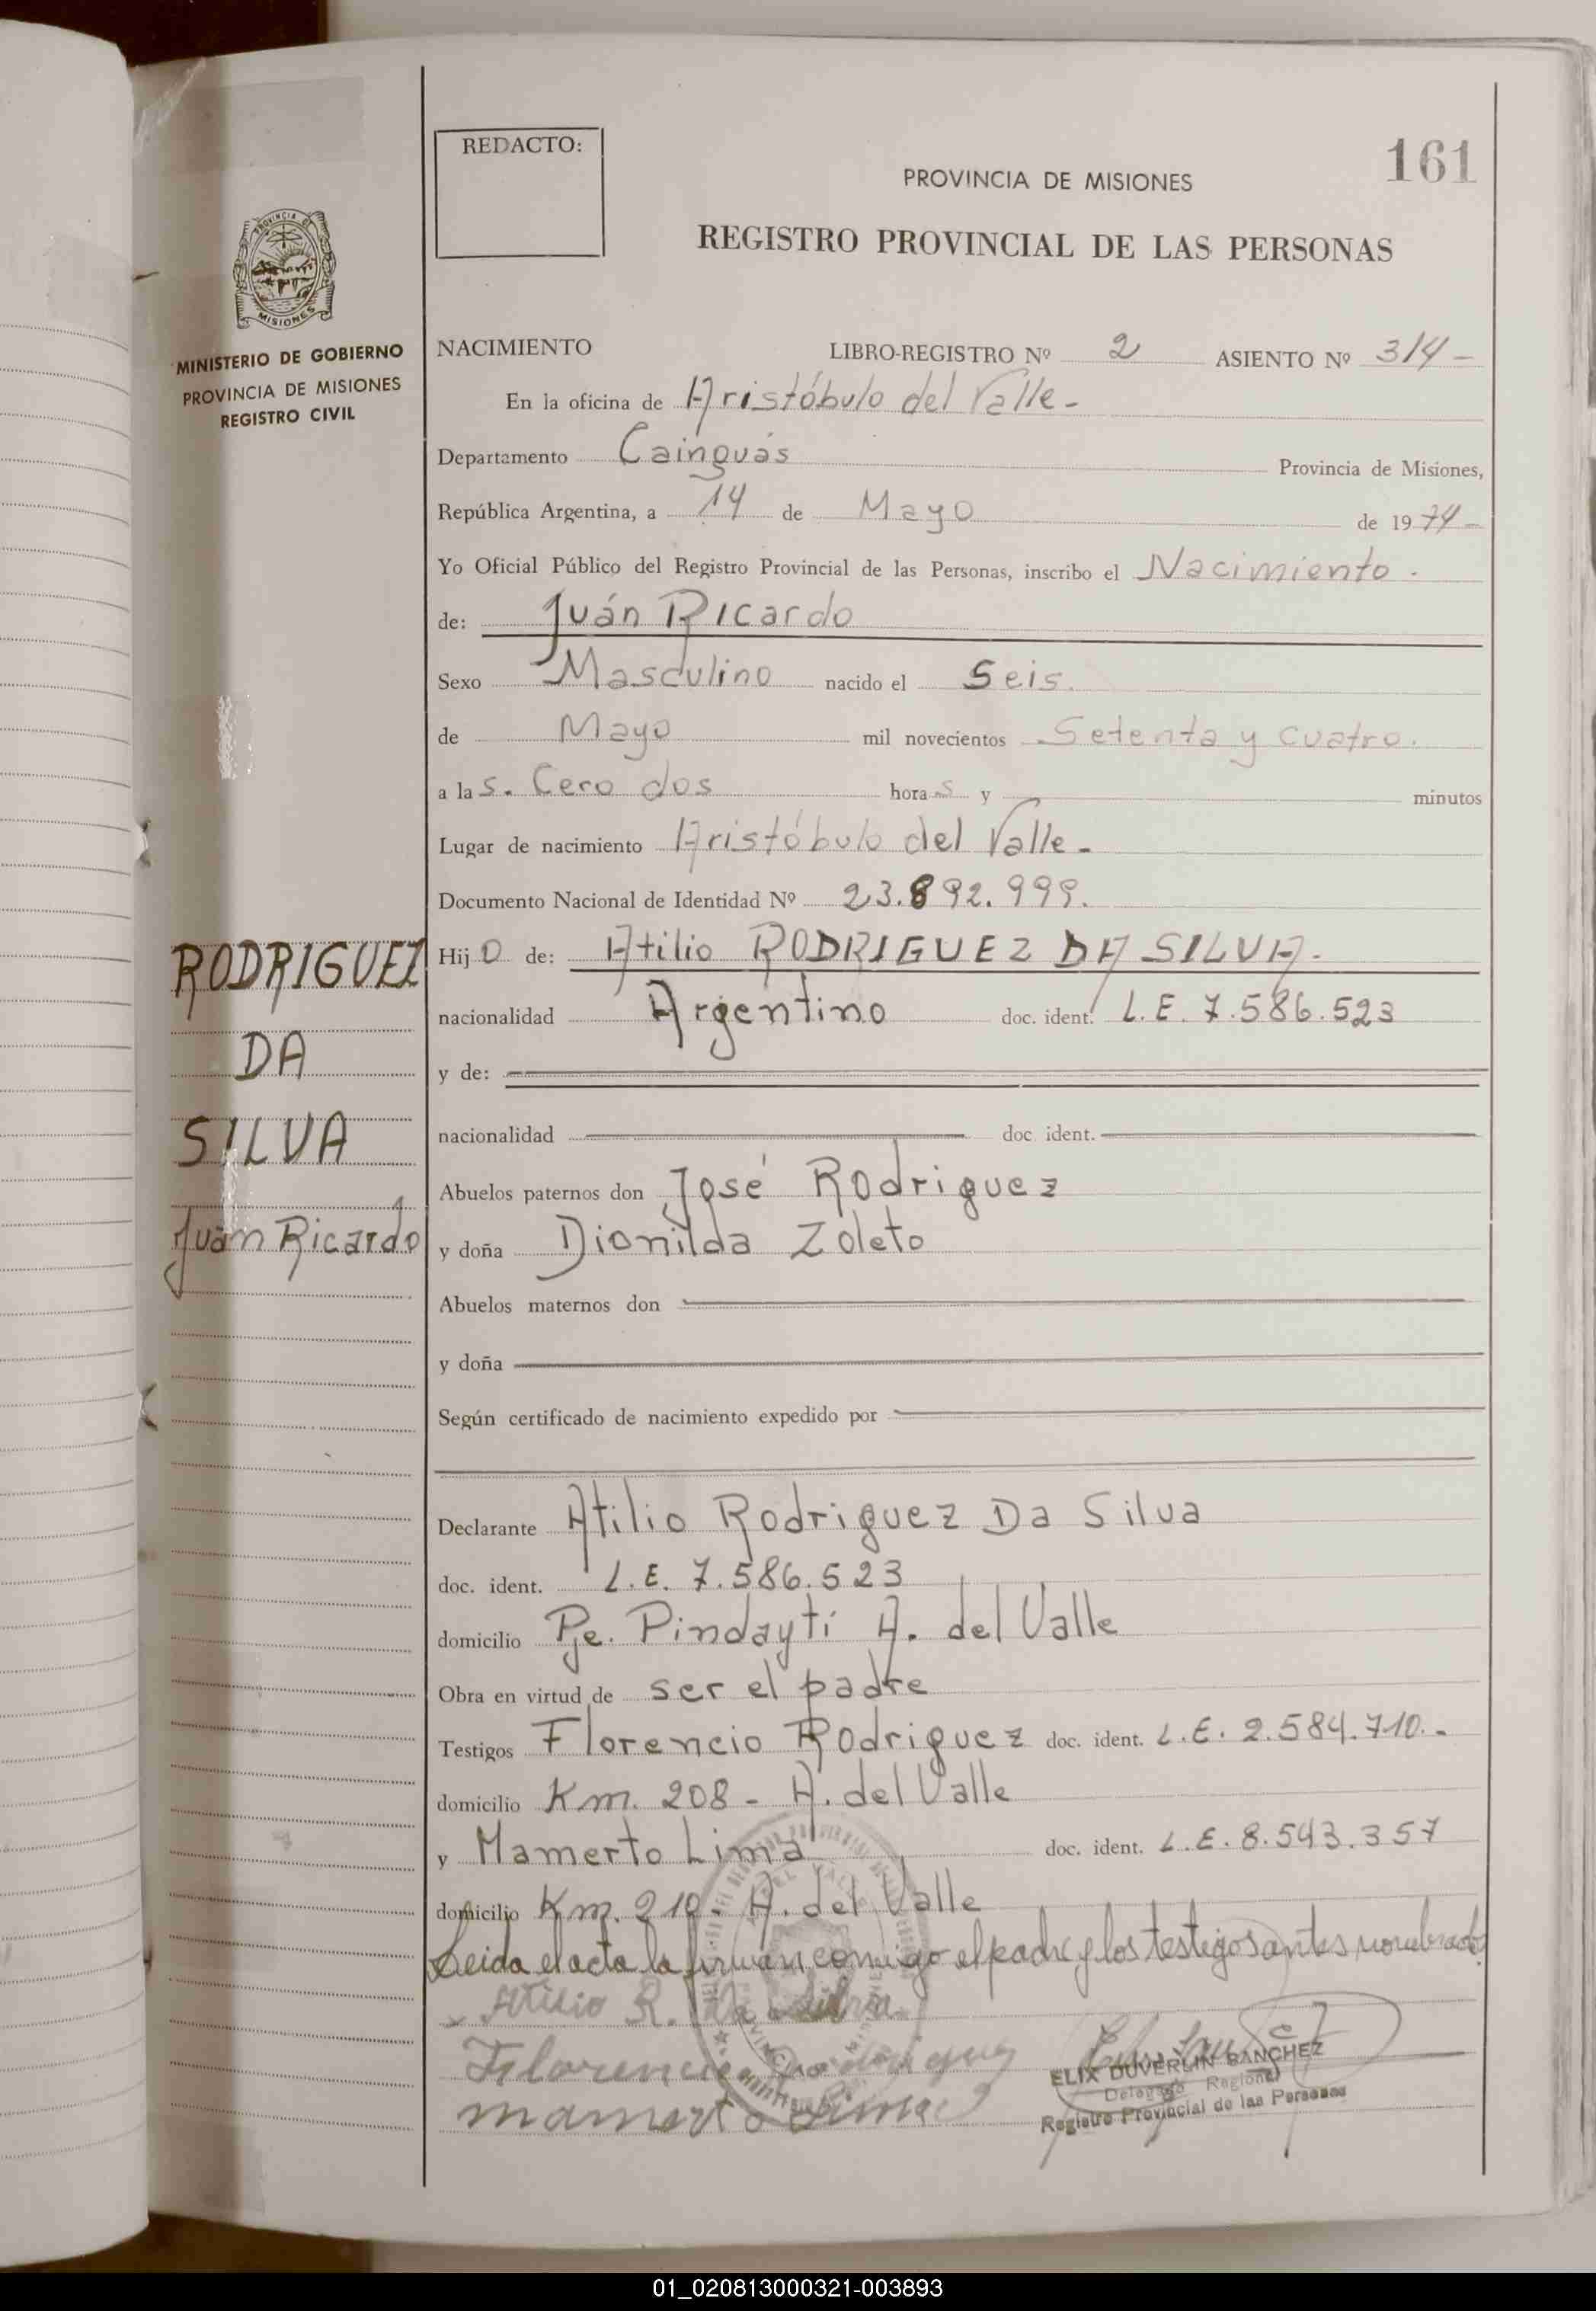 REDACTO:
161
PROVINCIA DE MISIONES
REGISTRO PROVINCIAL DE LAS PERSONAS
PROVINCIA DE
MISIONES
MINISTERIO DE GOBIERNO
PROVINCIA DE MISIONES
REGISTRO CIVIL
NACIMIENTO LIBRO-REGISTRO Nº 2 ASIENTO Nº 314 -
En la oficina de Aristóbulo del Valle -
Departamento Cainguás Provincia de Misiones,
República Argentina, a 14 de Mayo de 1974 -
Yo Oficial Público del Registro Provincial de las Personas, inscribo el Nacimiento.
de: Juán Ricardo
Sexo Masculino nacido el Seis.
de Mayo mil novecientos Setenta y cuatro.
a las. Cero dos horas y minutos
Lugar de nacimiento Aristóbulo del Valle -
Documento Nacional de Identidad Nº 23.892.999.
Hijo de: Atilio RODRIGUEZ DA SILVA.
nacionalidad Argentino doc. ident. L.E. 7.586.523
y de:
nacionalidad doc. ident.
Abuelos paternos don José Rodriguez
y doña Dionilda Zoleto
Abuelos maternos don
y doña
Según certificado de nacimiento expedido por
RODRIGUEZ
DA
SILVA
Juán Ricardo
Declarante Atilio Rodriguez Da Silva
doc. ident. L.E. 7.586.523
domicilio Pje. Pindaytí A. del Valle
Obra en virtud de ser el padre
Testigos Florencio Rodriguez doc. ident. L.E. 2.584.710. -
domicilio Km. 208 - A. del Valle
y Mamerto Lima doc. ident. L.E. 8.543.357
domicilio Km. 210 - A. del Valle
Leida el acta la firman conmigo el padre y los testigos antes nombrados
Atilio R. Da Silva
Florencio Rodriguez
mamerto Lima
ELIX DUVERLIN SANCHEZ
Delegado Regional
Registro Provincial de las Personas
01_020813000321-003893